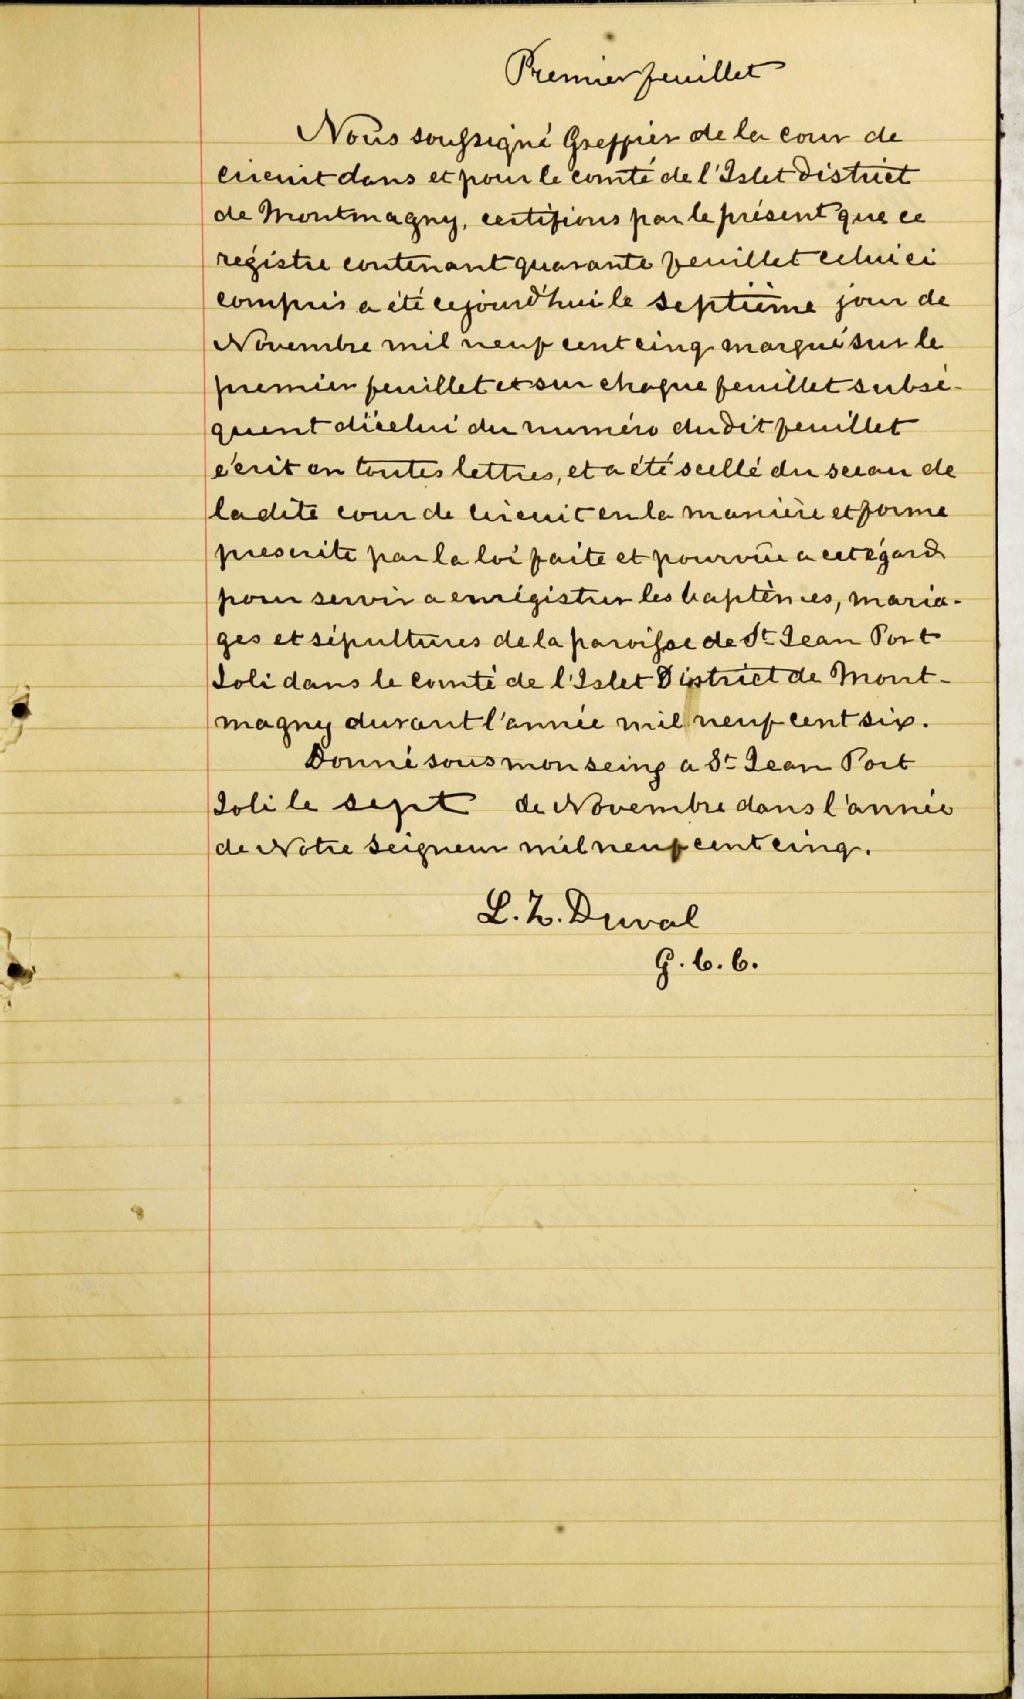 Premier feuillet
Nous soussigné Greffier de la cour de
circuit dans et pour le comté de l'Islet District
de Montmagny, certifions par le présent que ce
régistre contenant quarante feuillet celui ci
compris a été cejourd'hui le septième jour de
Novembre mil neuf cent cinq marqué sur le
premier feuillet et sur chaque feuillet subsé-
quent d'icelui du numéro dudit feuillet
écrit en toutes lettres, et a été scellé du sceau de
ladite cour de circuit en la manière et forme
prescrite par la loi faite et pourvûe a cet égard
pour servir a enrégistrer les baptêmes, maria-
ges et sépultures de la paroisse de St Jean Port
Joli dans le comté de l'Islet District de Mont-
magny durant l'année mil neuf cent six.
Donné sous mon seing a St Jean Port
Joli le sept de Novembre dans l'année
de Notre Seigneur mil neuf cent cinq.
L. Z. Duval
G. C. C.